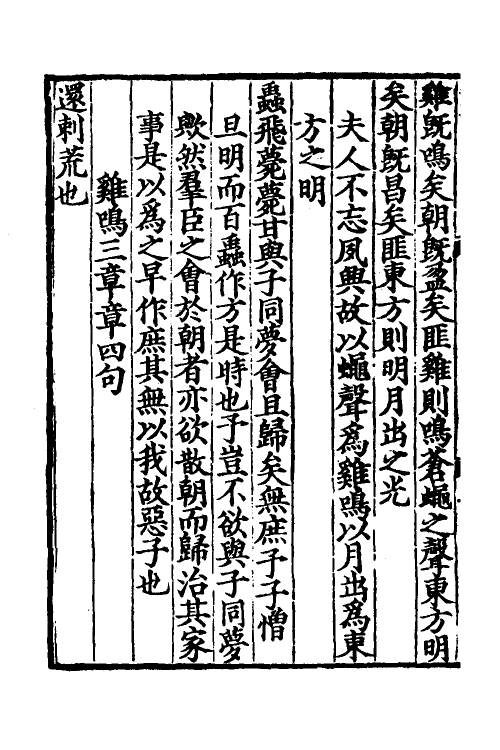 雞旣鳴矣朝旣盈矣匪雞則鳴蒼蠅之聲東方明
矣朝旣昌矣匪東方則明月出之光
夫人不忘夙興故以蠅聲爲雞鳴以月出爲東
方之明
蟲飛薨薨甘與子同夢會且歸矣無庶予子憎
旦明而百蟲作方是時也予豈不欲與子同夢
歟然羣臣之會於朝者亦欲散朝而歸治其家
事是以爲之早作庶其無以我故惡子也
雞鳴三章章四句
還刺荒也